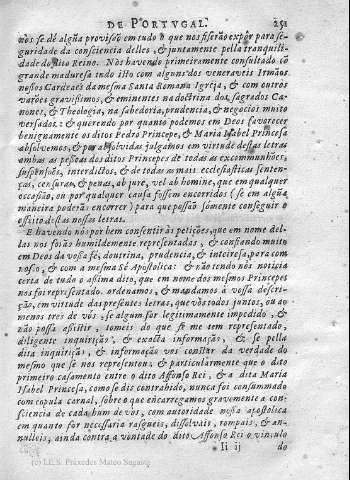 DE PORTVGAL. 251
vòs se dè algũa provisoõ em tudo o que nos fiserão expòr para se-
guridade da consciencia delles, & juntamente pella tranquili-
dade do dito Reino. Nòs havendo primeiramente consultado cõ
grande maduresa tudo isto com algũs dos veneraveis Irmãos
nossos Cardeaes da mesma Santa Romana Igreja, & com outros
varões gravissimos, & eminentes na doctrina dos sagrados Ca-
nones, & Theologia, na sabedoria, prudencia, & negocios muito
versados: & querendo por quanto podemos em Deos favorecer
benignamente os ditos Pedro Princepe, & Maria Isabel Princesa
absolvemos, & por absolvidas julgamos em virtude destas letras
ambas as pessoas dos ditos Princepes de todas as excommunhões,
suspensões, interdictos, & de todas as mais ecclesiasticas senten-
ças, censuras, & penas, ab jure, vel ab homine, que em qualquer
occasião, ou por qualquer causa fossem encorridos (se em algũa
maneira poderàõ encorrer) para que possaõ sómente conseguir o
effeito destas nossas letras.
E havendo nòs por bem consentir às petições, que em nome del-
las nos forão humildemente representadas, & confiando muito
em Deos da vossa fé, doutrina, prudencia, & inteiresa, para com
nosco, & com a mesma Sè Apostolica: & não tendo nòs noticia
certa de tudo o assima dito, que em nome dos mesmos Princepes
nos foi representado, ordenamos, & mandamos à vossa descri-
ção, em virtude das presentes letras, que vòs todos juntos, ou ao
menos tres de vòs, se algum for legitimamente impedido, &
não possa assistir, tomeis do que se me tem representado,
diligente inquirição, & exacta informação, & se pella
dita inquirição, & informação vos constar da verdade do
mesmo que se nos representou, & particularmente que o dito
primeiro casamento entre o dito Affonso Rei, & a dita Maria
Isabel Princesa, como se diz contrahido, nunca foi consummado
com copula carnal, sobre o que encarregamos gravemente a con-
sciencia de cada hum de vòs, com autoridade nossa apostolica
em quanto for necessaria rasgueis, dissolvais, rompais, & an-
nulleis, ainda contra a vontade do dito Affonso Rei o vinculo
Ii ij do
(c) I.E.S. Práxedes Mateo Sagasta